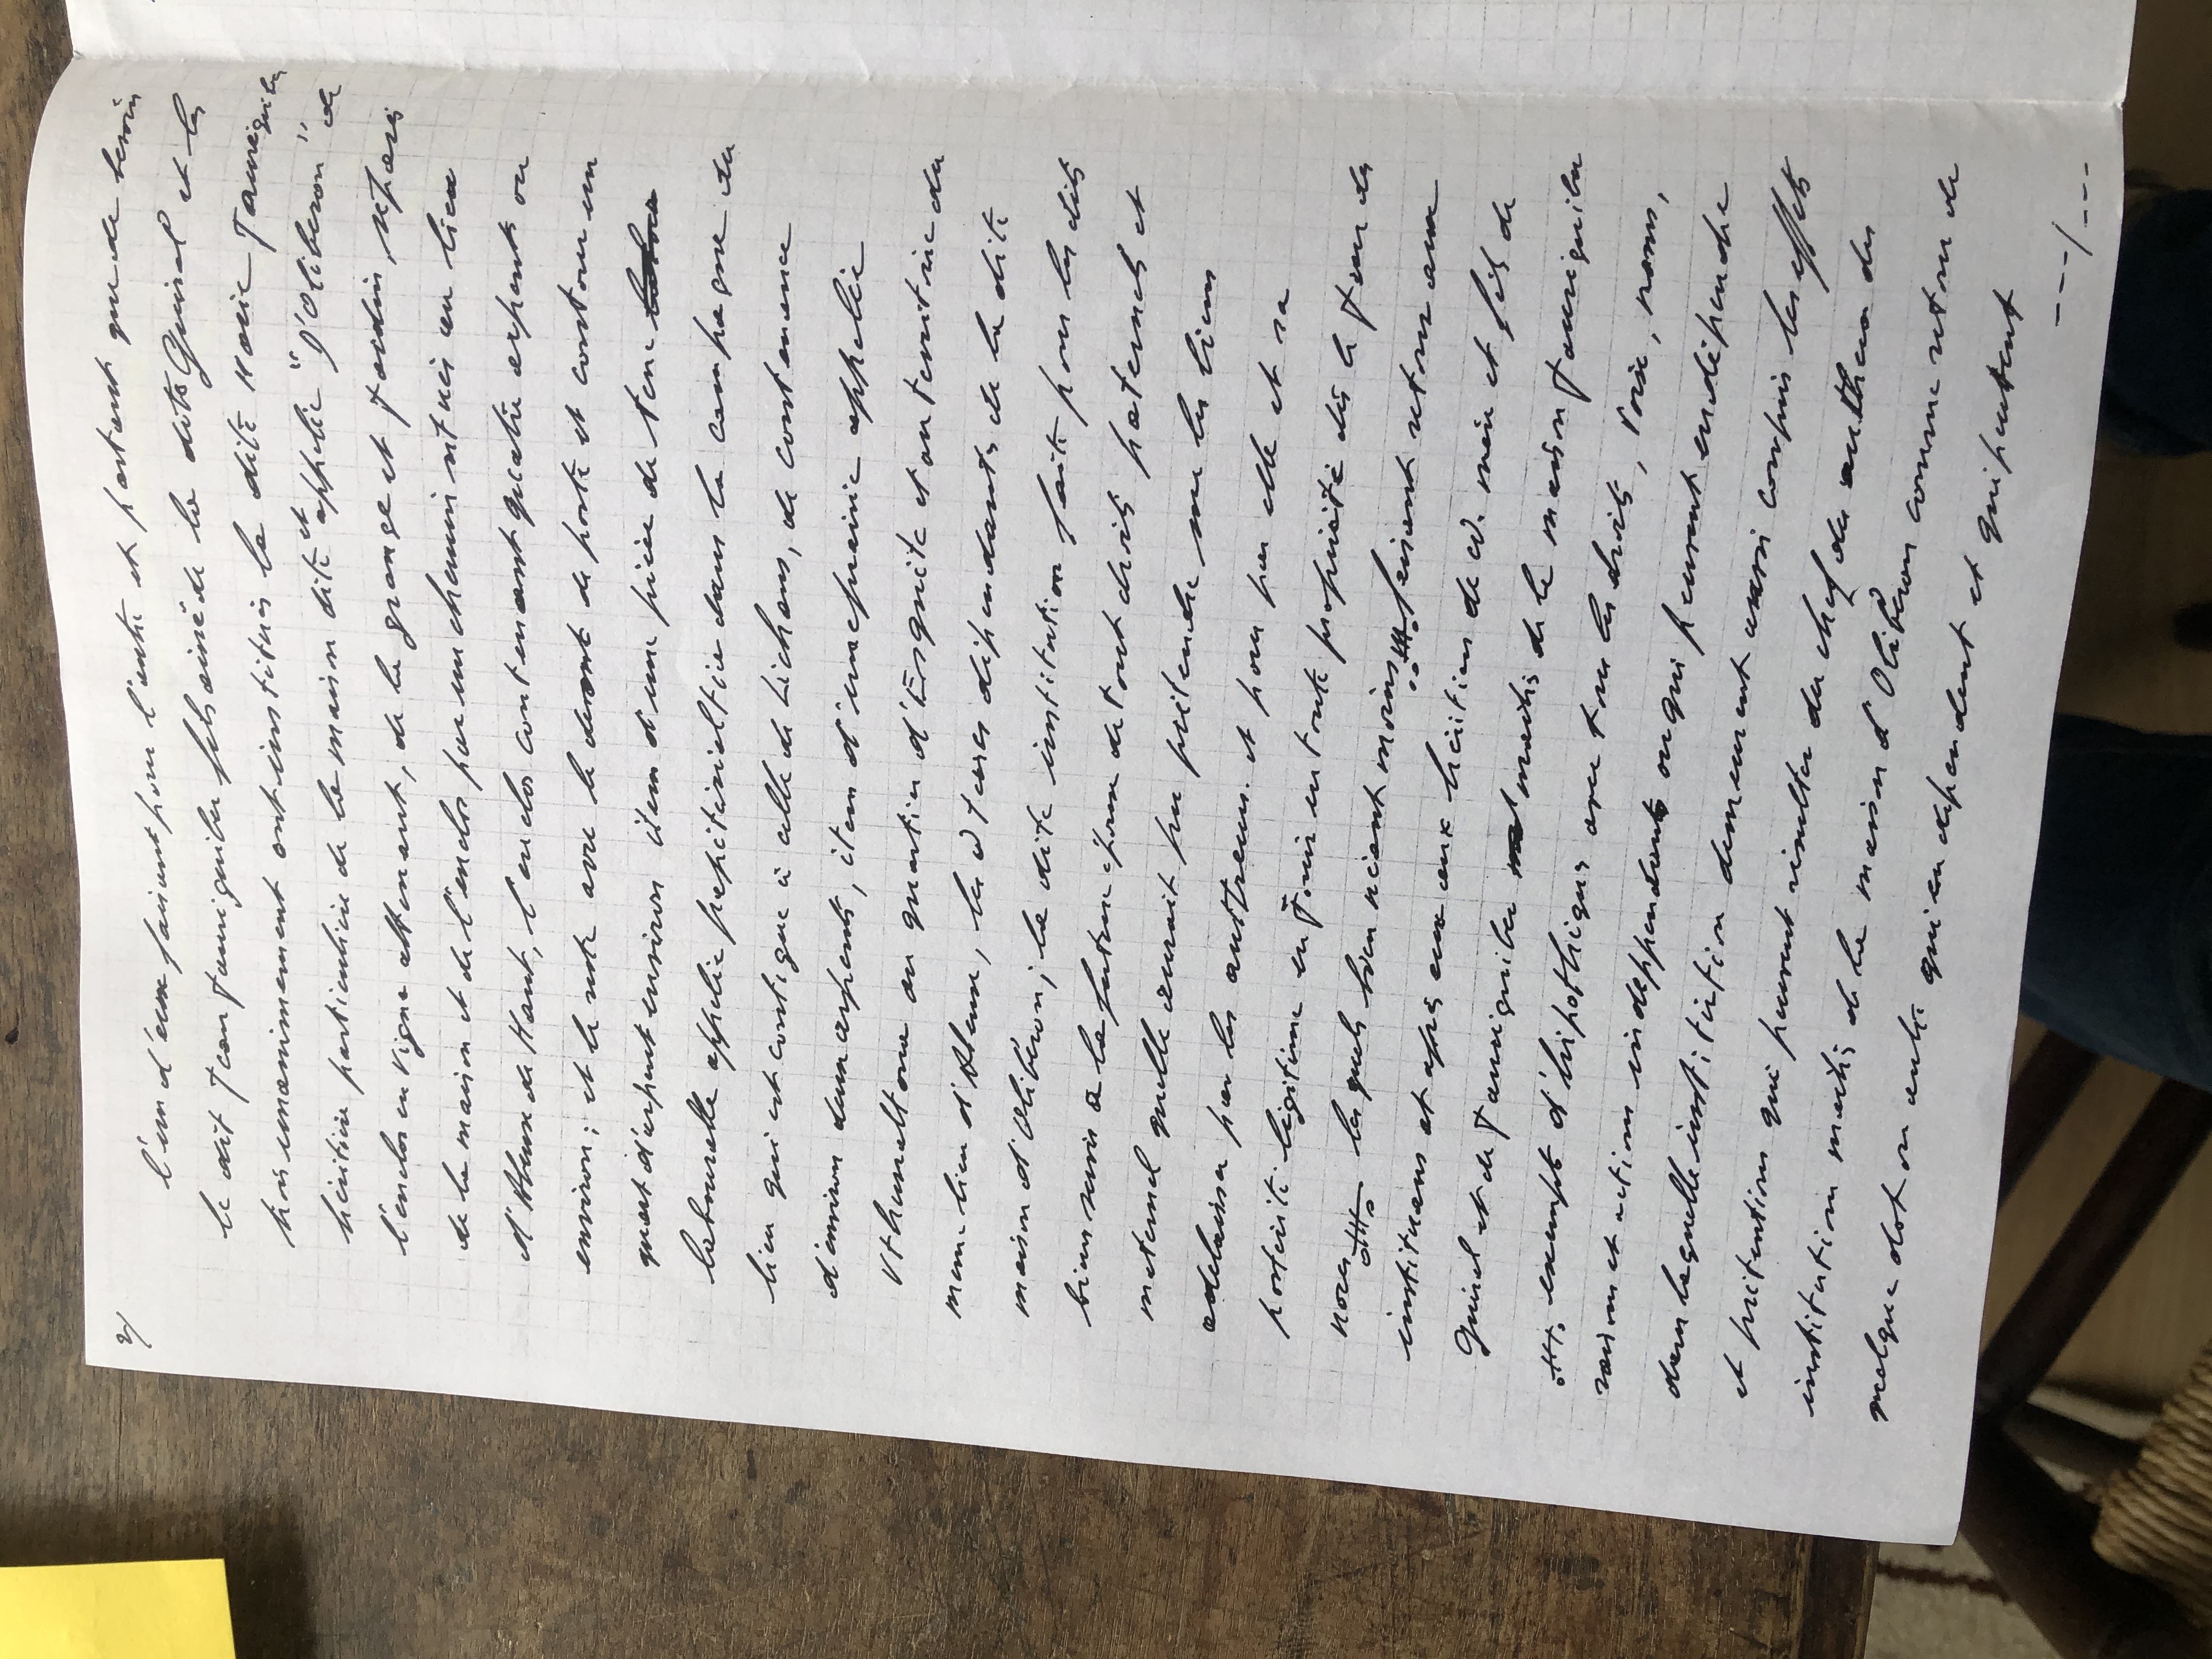 2/
l'un d'eux faisant pour l'autre et partant que de besoin
le dit Jean Jauriguiber fils ainé de la dite Guinel et les
trois unanimement ont institués la dite Marie Jauriguiber
héritière particulière de la maison dite et appelée "d'Oliberon" de
l'enclos en vigne attenant, de la grange et jardin séparés
de la maison et de l'enclos par un chemin situés au lieu
d'Abum de Haut, l'enclos contenant quatre arpents ou
environ; et le reste avec le devant de porte et contour un
quart d'arpent environ item d'une pièce de terre
labourelle appelée dans la campagne du
lieu qui est contigue à celle de Lichans, de contenance
d'environ deux arpents, item d'une prairie appelée
Uthurraltone au quartier d'Esquite et au territoire du
meme lieu d'Abum, les w terres dépendants de la dite
maison d'Oliberon; la dite institution faite pour les dits
biens servir a la future épouse de tout droits paternels et
maternel quelle aurait pu prétendre sur les biens
delaissés par les autheurs et pour par elle et sa
posterité légitime en jouir en toute propriété dès le jour des
noces les quels bien néant moins feraient retour aux
instituans et apres eux aux héritiers de w. mère et fils de
Guinel et de Jauriguiber de la maison Jauriguiber
exempt d'hipothèques avec tous les droits, voix, noms,
raisons et actions indeppendants ou qui peuvent en dépendre
dans laquelle institution demeurent aussi compris les effets
et prétentions qui peuvent résulter du chef des autheurs des
institution mariés de la maison d'Oliberon comme retour de
quelque dot ou autre qui en dépendent et qui peuvent
---/---